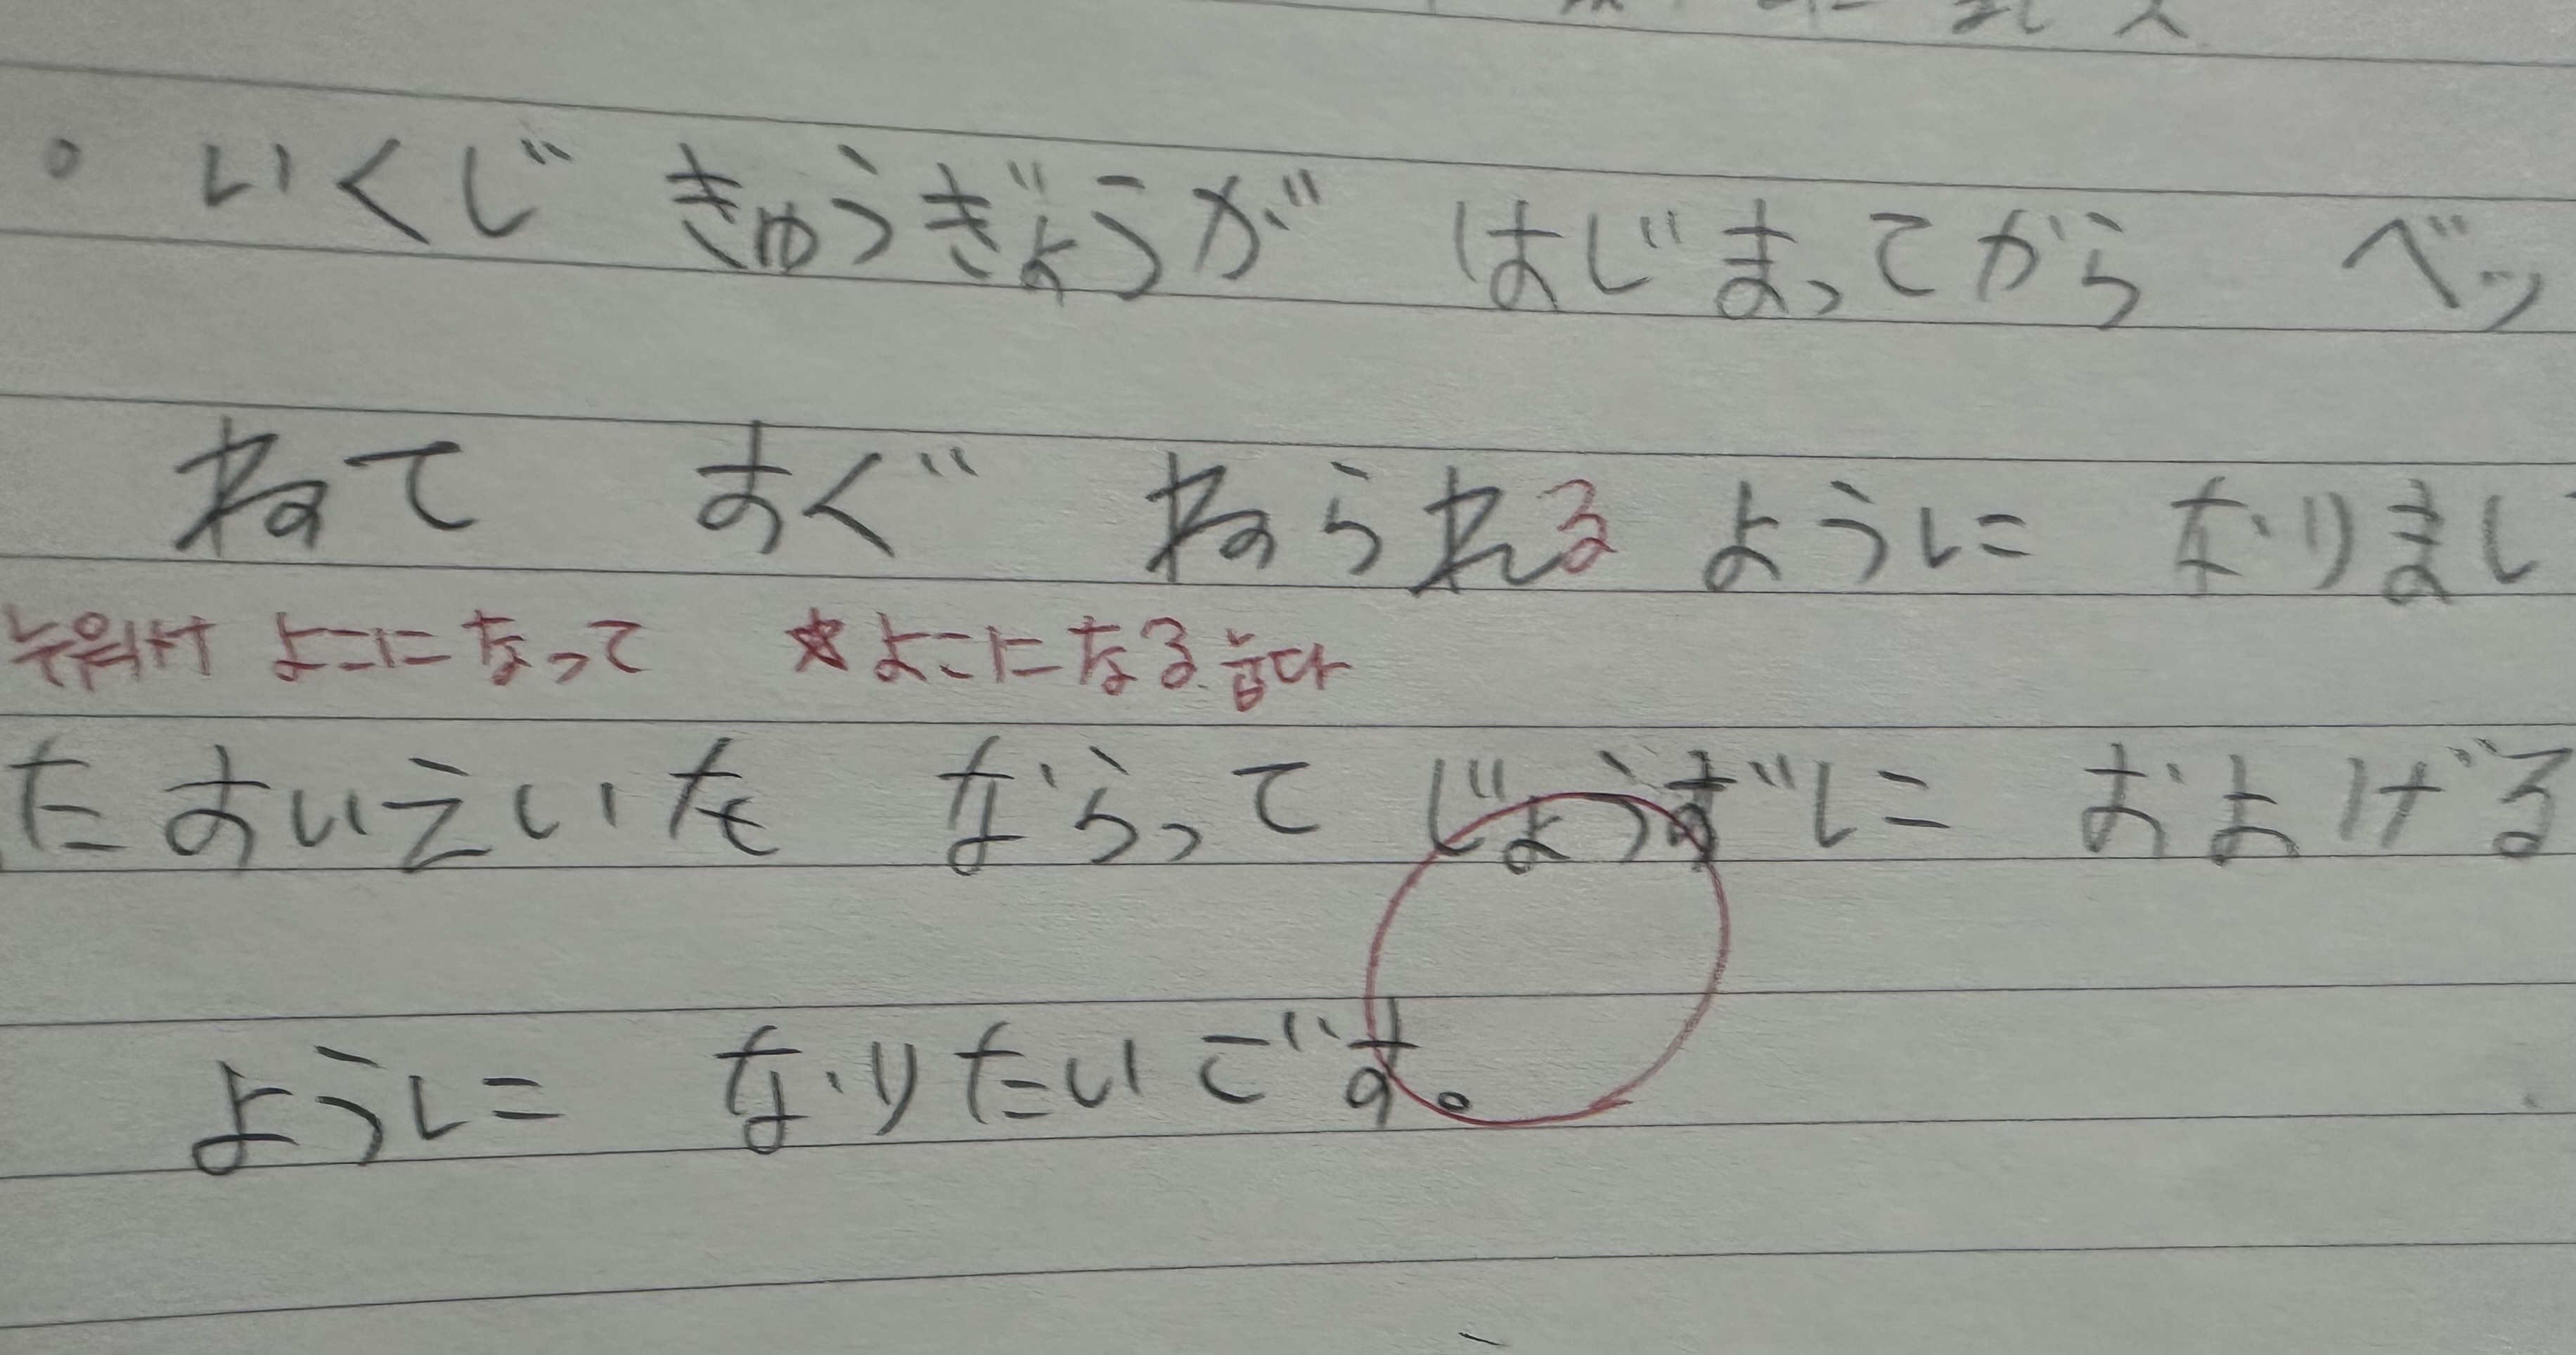 。いくじ きゅうぎょうが はじまってから ベッ
ねて すぐ ねられる ように なりまし
누워서 よこになって ☆よこになる 눕다
た すいえいを ならって じょうずに およげる
ように なりたいです。